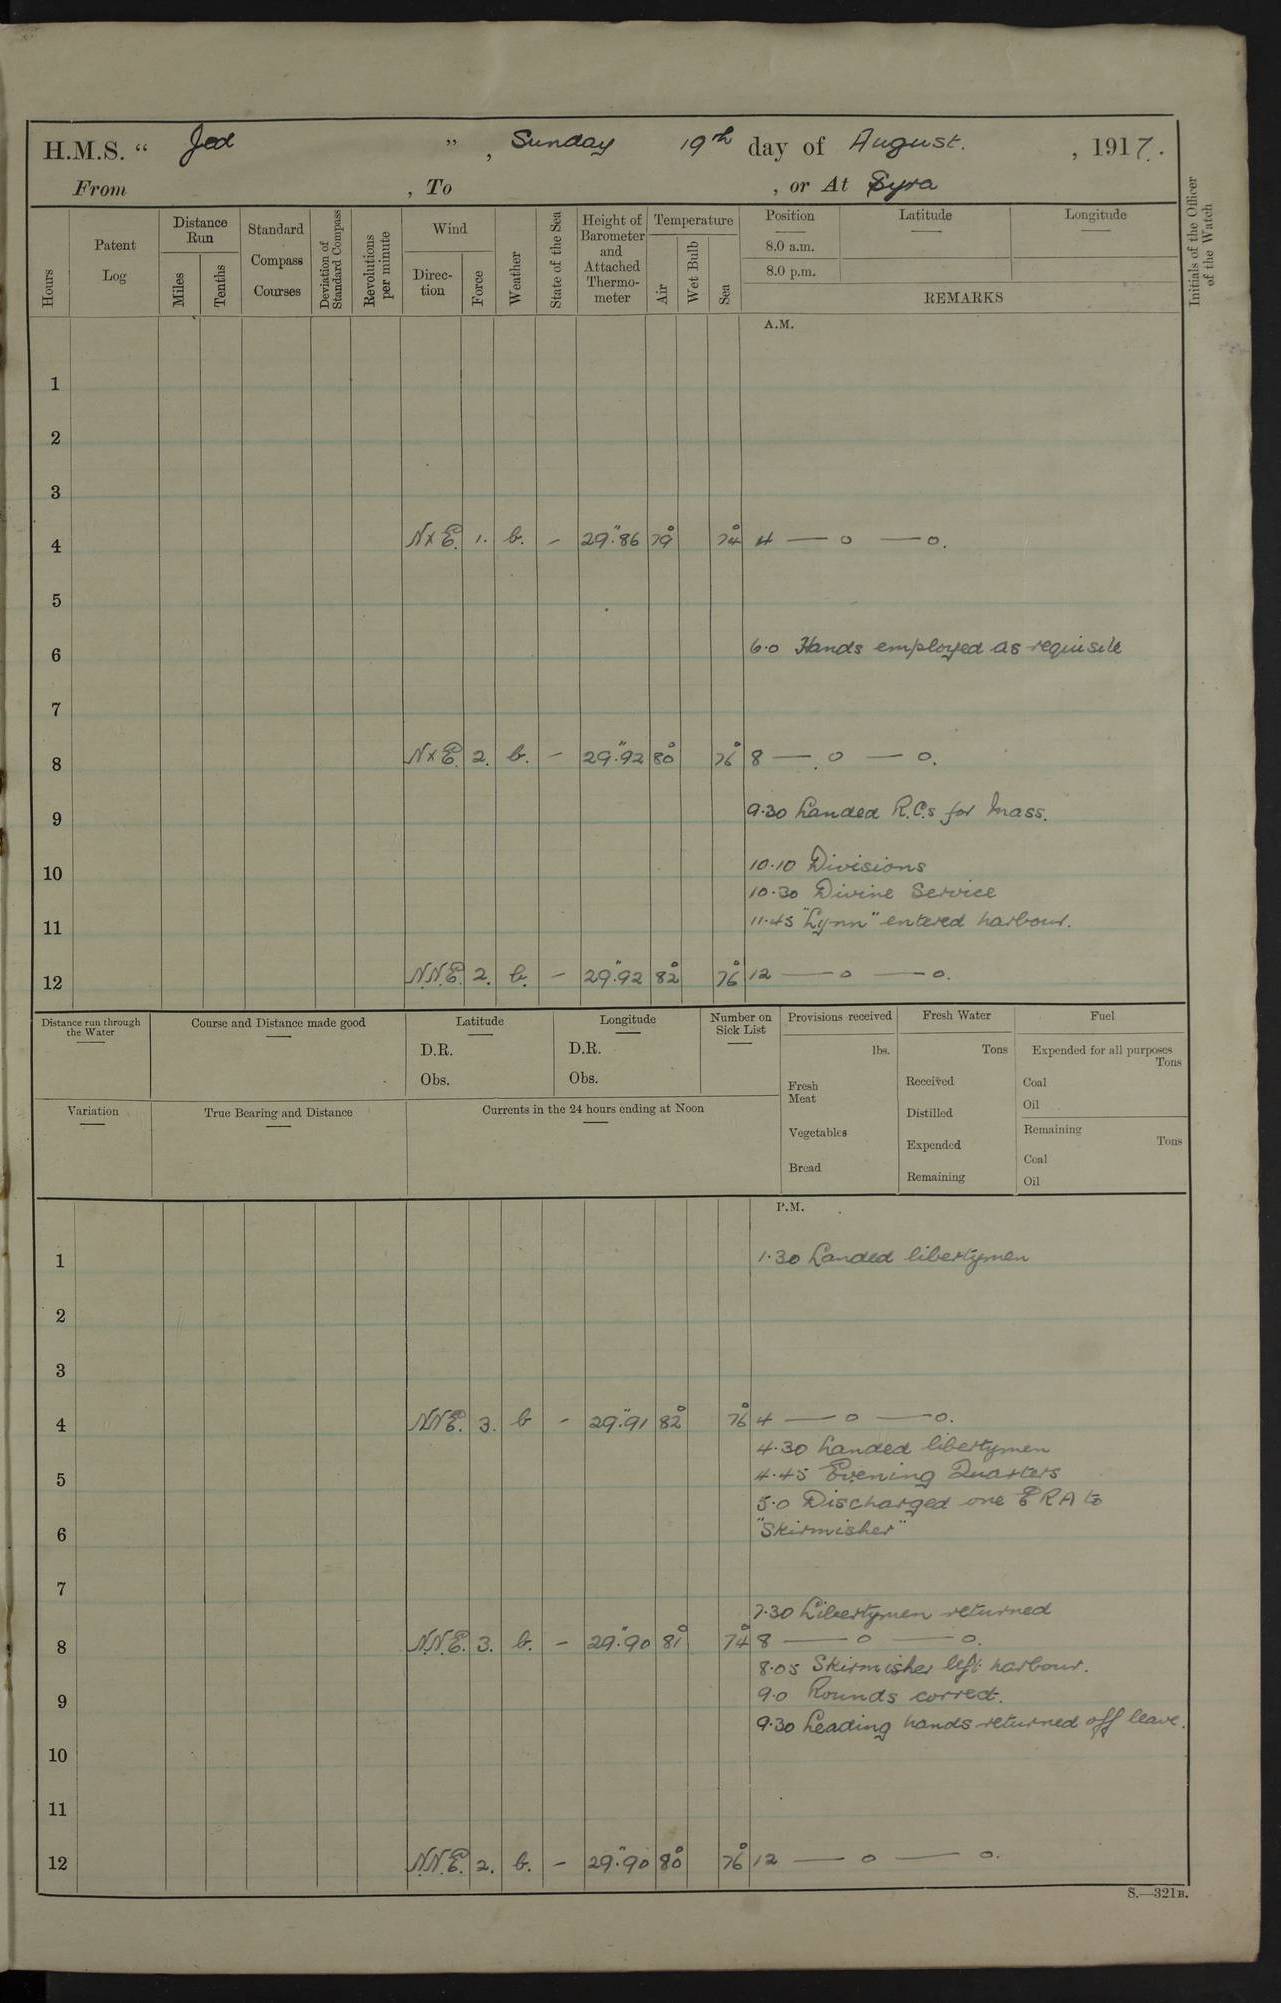 H.M.S. “ Jed ” , Sunday 19th day of August. , 1917.
From , To , or At Syra
Hours
Patent Log
Distance Run
Miles
Tenths
Standard Compass Courses
Deviation of Standard Compass
Revolutions per minute
Wind
Direc-tion
Force
Weather
State of the Sea
Height of Barometer and Attached Thermo-meter
Temperature
Air
Wet Bulb
Sea
Position
8.0 a.m.
8.0 p.m.
Latitude
Longitude
REMARKS
Initials of the Officer of the Watch
A.M.
1
2
3
4 N x E. 1. b. – 29".86 79° 74° 4 — o — o.
5
6 6.0 Hands employed as requisite
7
8 N x E. 2. b. – 29".92 80° 76° 8 — o — o.
9 9.30 Landed R.C.s for Mass.
10 10.10 Divisions
10.30 Divine Service
11 11.45 "Lynn" entered harbour.
12 N.N.E. 2. b. – 29".92 82° 76° 12 — o — o.
Distance run through the Water
Course and Distance made good
Latitude
D.R.
Obs.
Longitude
D.R.
Obs.
Number on Sick List
Provisions received
lbs.
Fresh Meat
Vegetables
Bread
Fresh Water
Tons
Received
Distilled
Expended
Remaining
Fuel
Expended for all purposes
Tons
Coal
Oil
Remaining
Tons
Coal
Oil
Variation
True Bearing and Distance
Currents in the 24 hours ending at Noon
P.M.
1 1.30 Landed libertymen
2
3
4 N.N.E. 3. b – 29".91 82° 76° 4 — o — o.
4.30 Landed libertymen
5 4.45 Evening Quarters
5.0 Discharged one ERA to
6 "Skirmisher"
7
7.30 Libertymen returned
8 N.N.E. 3. b. – 29".90 81° 74° 8 — o — o.
8.05 Skirmisher left harbour.
9 9.0 Rounds correct.
9.30 Leading hands returned off leave.
10
11
12 N.N.E. 2. b. – 29".90 80° 76° 12 — o — o.
S.—321B.